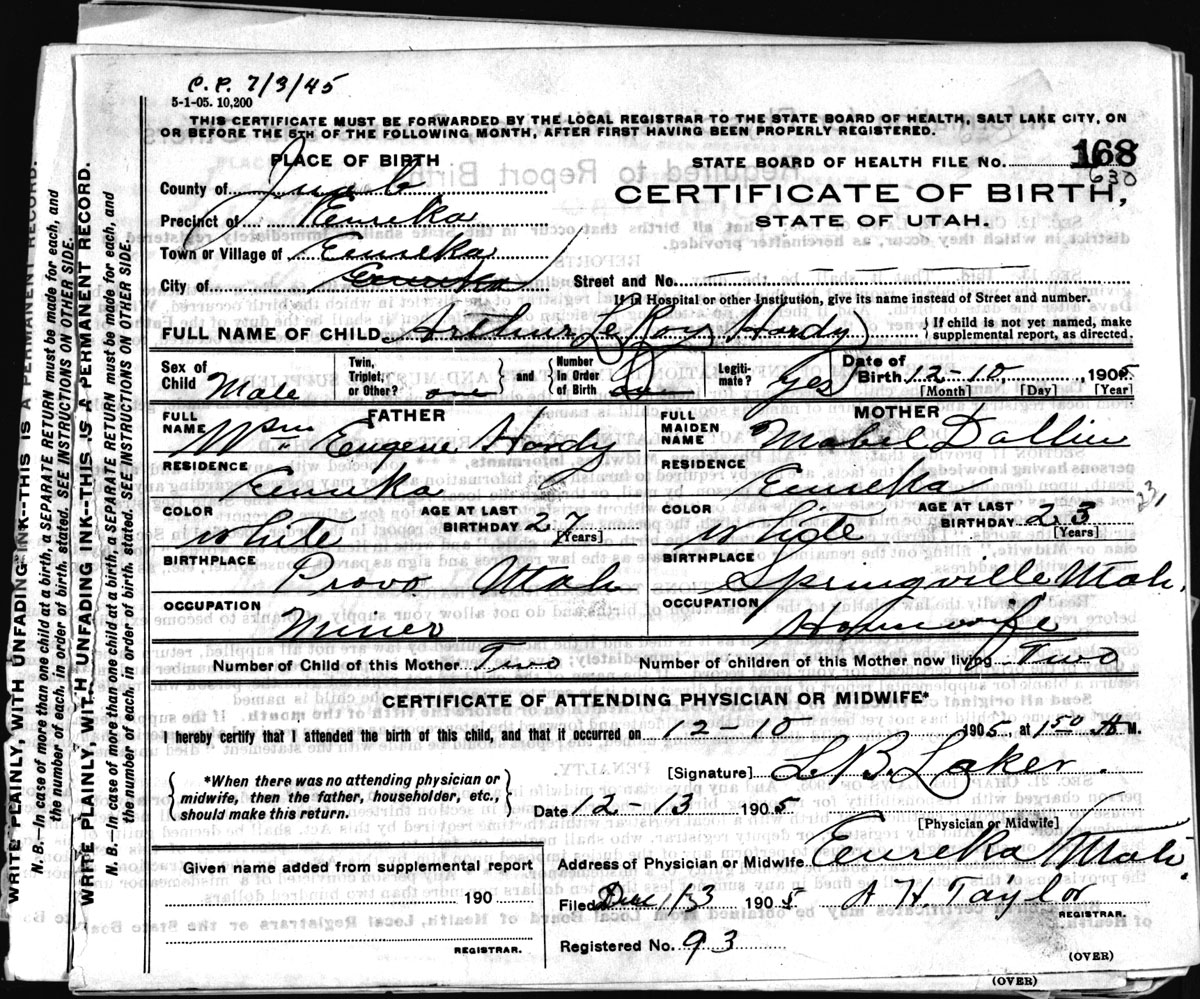 C.P. 7/3/45
5-1-05. 10,200
THIS CERTIFICATE MUST BE FORWARDED BY THE LOCAL REGISTRAR TO THE STATE BOARD OF HEALTH, SALT LAKE CITY, ON
OR BEFORE THE 5TH OF THE FOLLOWING MONTH, AFTER FIRST HAVING BEEN PROPERLY REGISTERED.
PLACE OF BIRTH
STATE BOARD OF HEALTH FILE No. 168
630
County of Juab
CERTIFICATE OF BIRTH,
Precinct of Eureka
STATE OF UTAH.
Town or Village of Eureka
City of Eureka
Street and No.
If in Hospital or other Institution, give its name instead of Street and number.
FULL NAME OF CHILD Arthur LeRoy Hardy { If child is not yet named, make supplemental report, as directed.
Sex of Child Male Twin, Triplet, or Other? one and Number in Order of Birth Legitimate? Yes Date of Birth 12-10, 1905
[Month] [Day] [Year]
FATHER
FULL NAME Wm Eugene Hardy
RESIDENCE Eureka
COLOR White AGE AT LAST BIRTHDAY 27 [Years]
BIRTHPLACE Provo Utah
OCCUPATION Miner
MOTHER
FULL MAIDEN NAME Mabel Dallin
RESIDENCE Eureka
COLOR AGE AT LAST BIRTHDAY 23 [Years]
23
BIRTHPLACE Springville Utah.
OCCUPATION Housewife
Number of Child of this Mother Two Number of children of this Mother now living Two
CERTIFICATE OF ATTENDING PHYSICIAN OR MIDWIFE*
I hereby certify that I attended the birth of this child, and that it occurred on 12-10 1905 at 1:50 A M.
*When there was no attending physician or midwife, then the father, householder, etc., should make this return.
[Signature] L. B. Laker.
Date 12-13 1905
[Physician or Midwife]
Given name added from supplemental report
190
REGISTRAR.
Address of Physician or Midwife Eureka Utah.
Filed Dec 13 1905 A H Taylor
REGISTRAR.
Registered No. 93
(OVER)
(OVER)
WRITE PLAINLY, WITH UNFADING INK--THIS IS A PERMANENT RECORD.
N. B.--In case of more than one child at a birth, a SEPARATE RETURN must be made for each, and
the number of each, in order of birth, stated. SEE INSTRUCTIONS ON OTHER SIDE.
WRITE PLAINLY, WITH UNFADING INK--THIS IS A PERMANENT RECORD.
N. B.--In case of more than one child at a birth, a SEPARATE RETURN must be made for each, and
the number of each, in order of birth, stated. SEE INSTRUCTIONS ON OTHER SIDE.